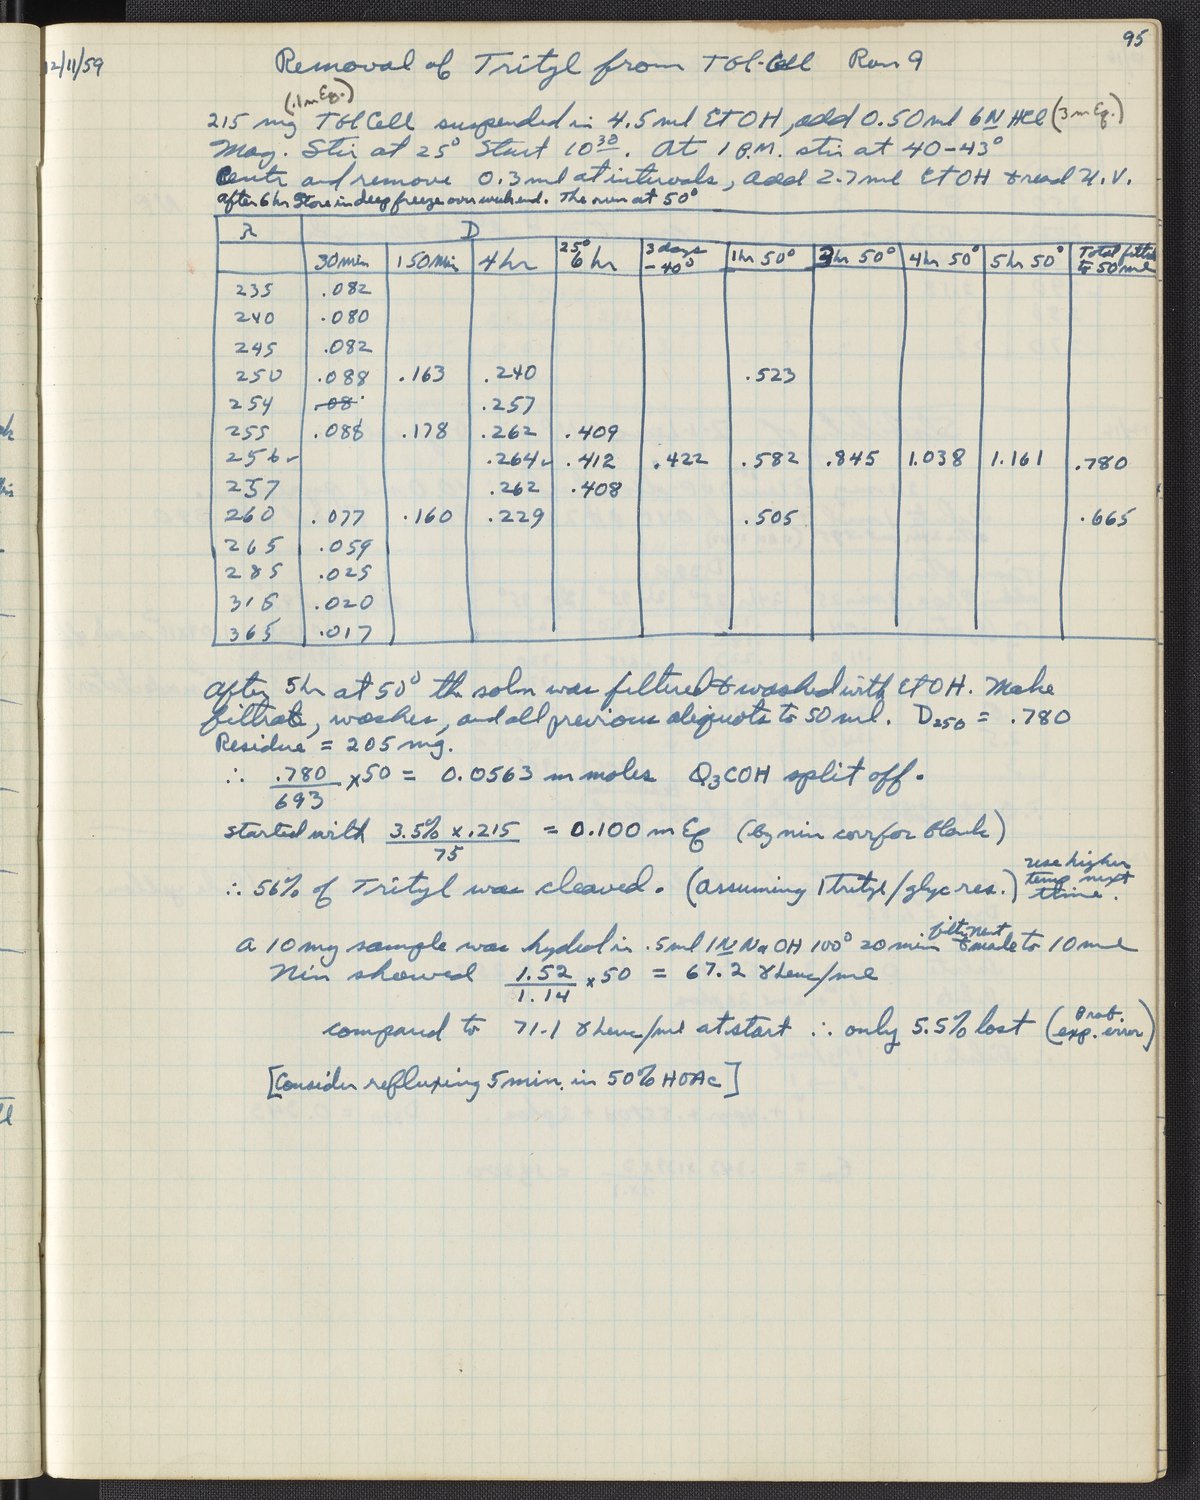 95
12/11/59
Removal of Trityl from TGl-Cell Run 9
(.1 mEq.)
215 mg TGl Cell suspended in 4.5 ml EtOH, add 0.50 ml 6N HCl (3 mEq.)
Mag. Stir at 25° Start 10 30. At 1 P.M. stir at 40-43°
Centr and remove 0.3 ml at intervals, add 2.7 ml EtOH & read U.V.
after 6 hr Store in deep freeze over weekend. Then run at 50°
λ D
30 min 150 min 4 hr 25° 6 hr 3 days -40° 1 hr 50° 3 hr 50° 4 hr 50° 5 hr 50° Total filt to 50 ml
235 .082
240 .080
245 .082
250 .088 .163 .240 .523
254 .08 .257
255 .088 .178 .262 .409
256 .264 .412 .422 .582 .845 1.038 1.161 .780
257 .262 .408
260 .077 .160 .229 .505 .665
265 .059
285 .025
315 .020
365 .017
after 5 hr at 50° the soln was filtered & washed with EtOH. Make
filtrate, washes, and all previous aliquots to 50 ml. D250 = .780
Residue = 205 mg.
∴ .780/693 × 50 = 0.0563 m moles Q3COH split off.
started with 3.5% × .215/75 = 0.100 mEq (by nin corr for blank)
∴ 56% of Trityl was cleaved. (assuming 1 trityl/glyc res.) use higher temp next time.
a 10 mg sample was hydrol in .5 ml 1N NaOH 100° 20 min & made to 10 ml
Nin showed 1.52/1.14 × 50 = 67.2 γ Leuc/ml
compared to 71.1 γ Leuc/ml at start ∴ only 5.5% lost (Prob. exp. error)
[Consider refluxing 5 min. in 50% HOAc]